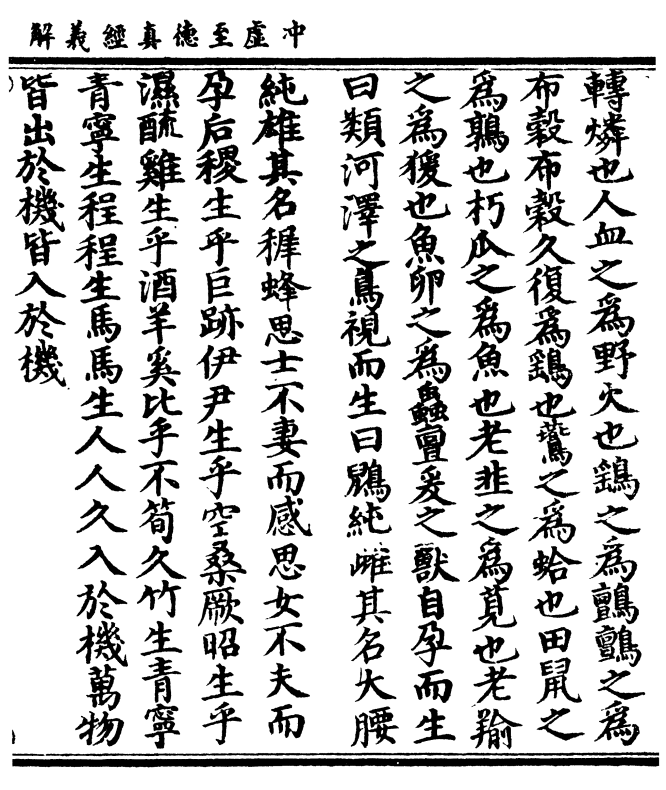 冲虛至德真經義解
轉燐也人血之爲野火也鷂之爲鸇鸇之爲
布穀布穀久復爲鷂也鷰之爲蛤也田鼠之
爲鶉也朽瓜之爲魚也老韭之爲莧也老羭
之爲猨也魚卵之爲蟲亶爰之獸自孕而生
曰類河澤之鳥視而生曰鶂純雌其名大腰
純雄其名稺蜂思士不妻而感思女不夫而
孕后稷生乎巨跡伊尹生乎空桑厥昭生乎
濕醯雞生乎酒羊奚比乎不筍久竹生青寧
青寧生程程生馬馬生人人久入於機萬物
皆出於機皆入於機